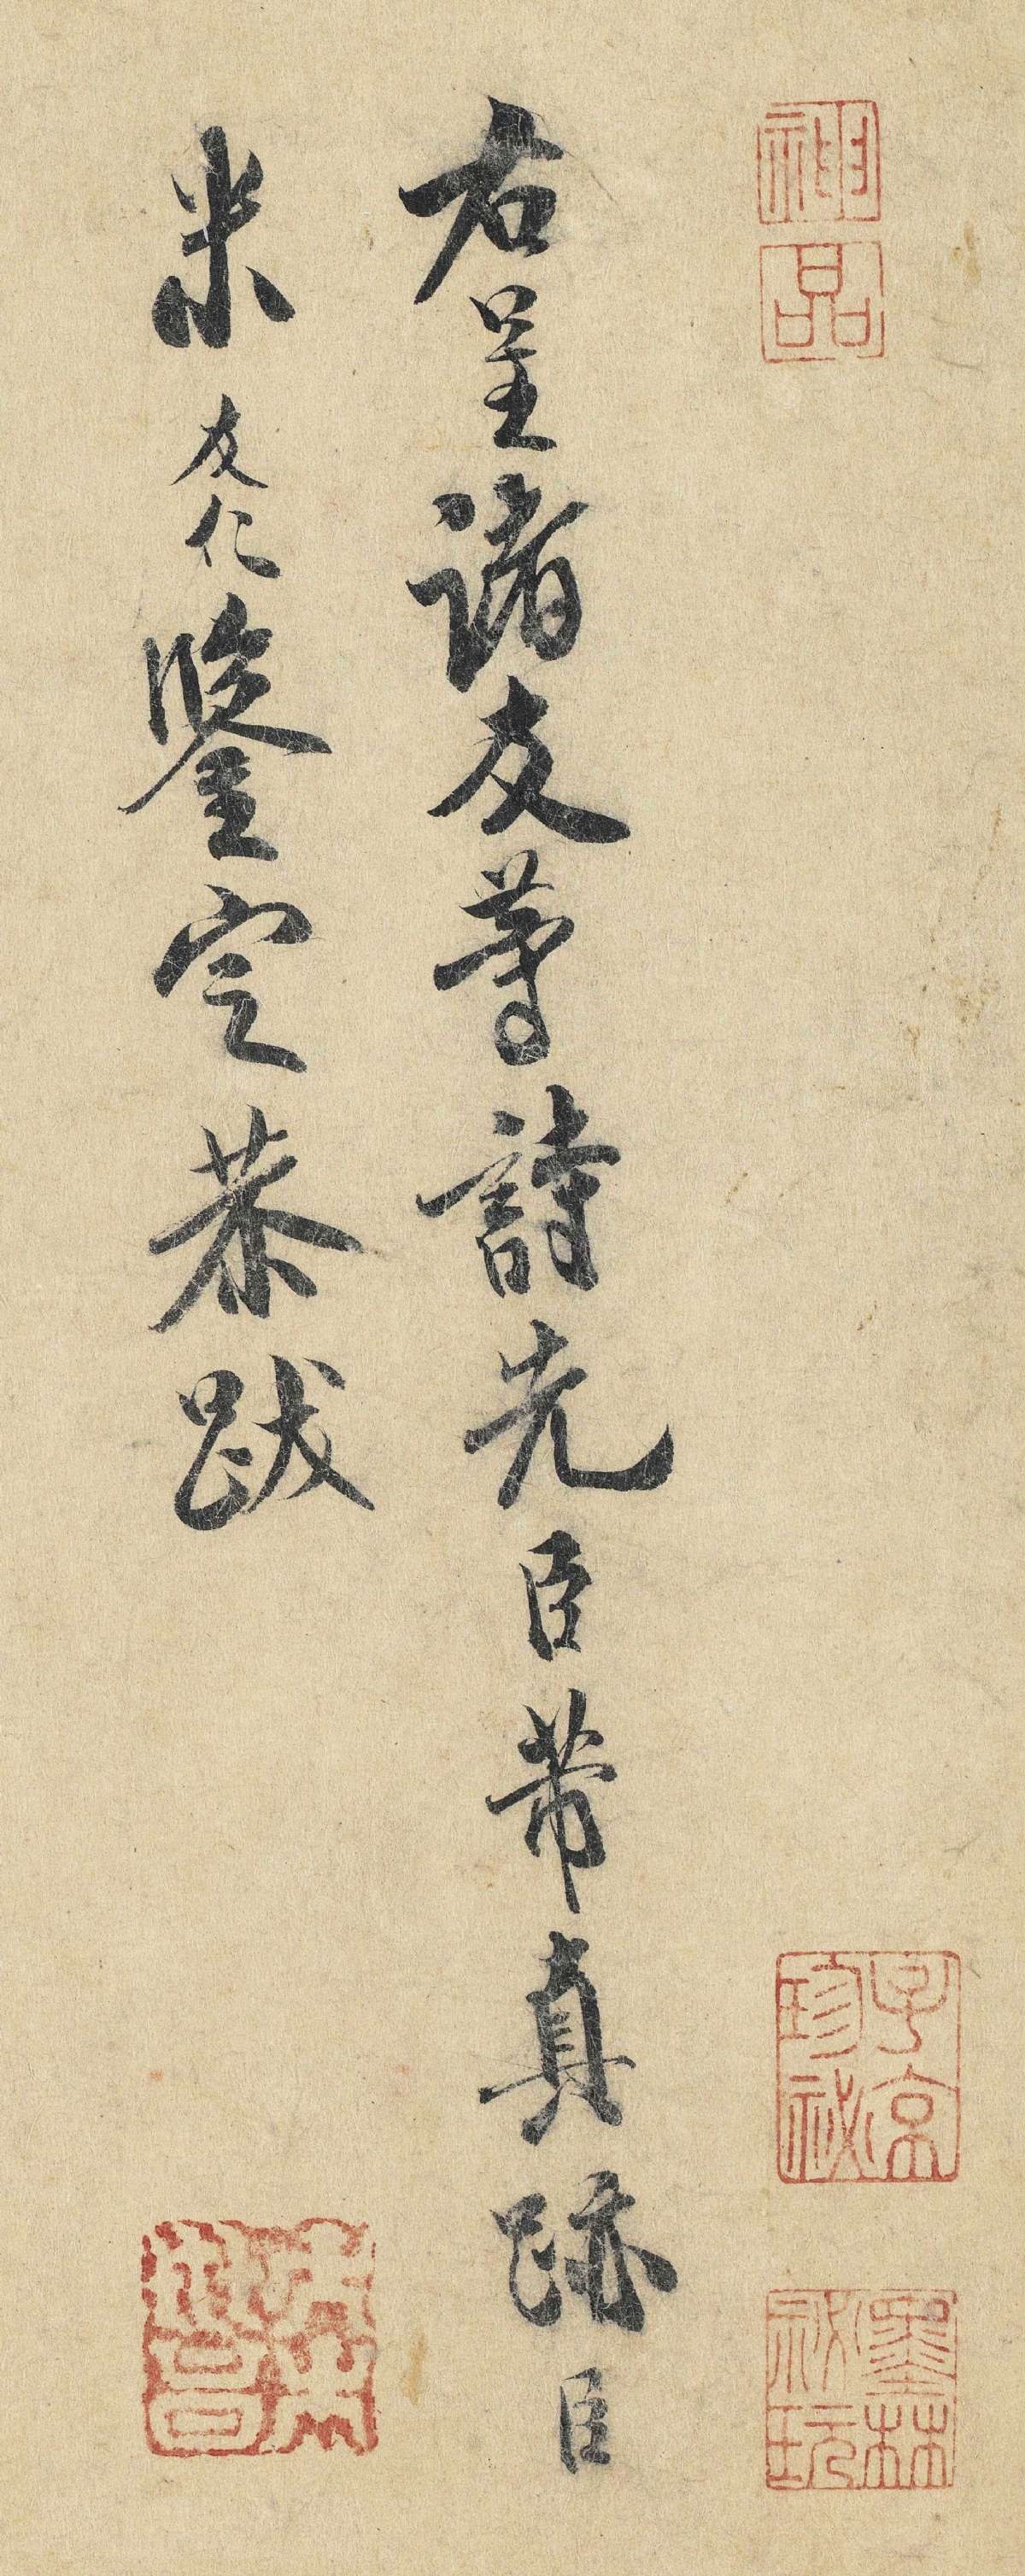 神品
子京珍祕
墨林祕玩
右呈諸友等詩先臣芾真跡臣
米友仁鑒定恭跋